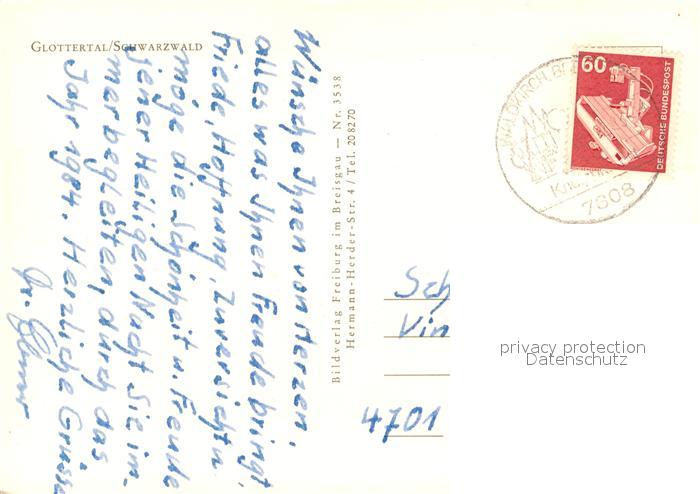 GLOTTERTAL/SCHWARZWALD
Wünsche Ihnen von Herzen,
alles was Ihnen Freude bringt,
Friede, Hoffnung, Zuversicht u.
möge die Schönheit u. Freude
jener Heiligen Nacht Sie im-
mer begleiten, durch das
Jahr 1984. Herzliche Grüsse
Bildverlag Freiburg im Breisgau — Nr. 3538
Hermann-Herder-Str. 4 / Tel. 208270
WALDKIRCH, BR
7808
60
DEUTSCHE BUNDESPOST
Sch
Vin
4701
privacy protection
Datenschutz